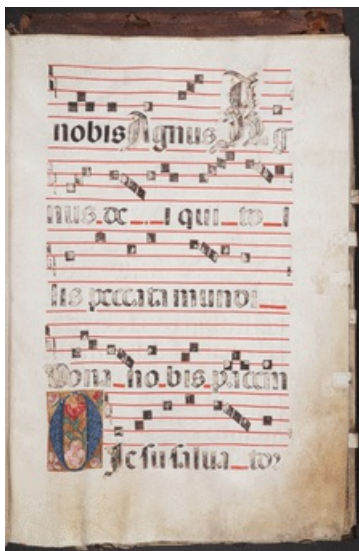 nobis Agnus A g
nus de _ i qui _ to _ l
lis peccata mundi _
Dona _ no _ bis pacem
O Jesu salua _ tor